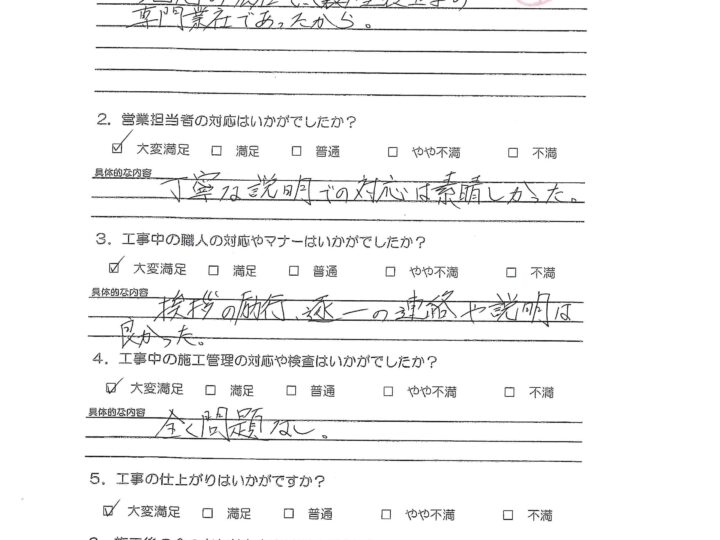 専門業社であったから。
2. 営業担当者の対応はいかがでしたか？
☑ 大変満足 □ 満足 □ 普通 □ やや不満 □ 不満
具体的な内容
丁寧な説明での対応は素晴しかった。
3. 工事中の職人の対応やマナーはいかがでしたか？
☑ 大変満足 □ 満足 □ 普通 □ やや不満 □ 不満
具体的な内容
挨拶の励行、逐一の連絡や説明は
良かった。
4. 工事中の施工管理の対応や検査はいかがでしたか？
☑ 大変満足 □ 満足 □ 普通 □ やや不満 □ 不満
具体的な内容
全く問題なし。
5. 工事の仕上がりはいかがですか？
☑ 大変満足 □ 満足 □ 普通 □ やや不満 □ 不満